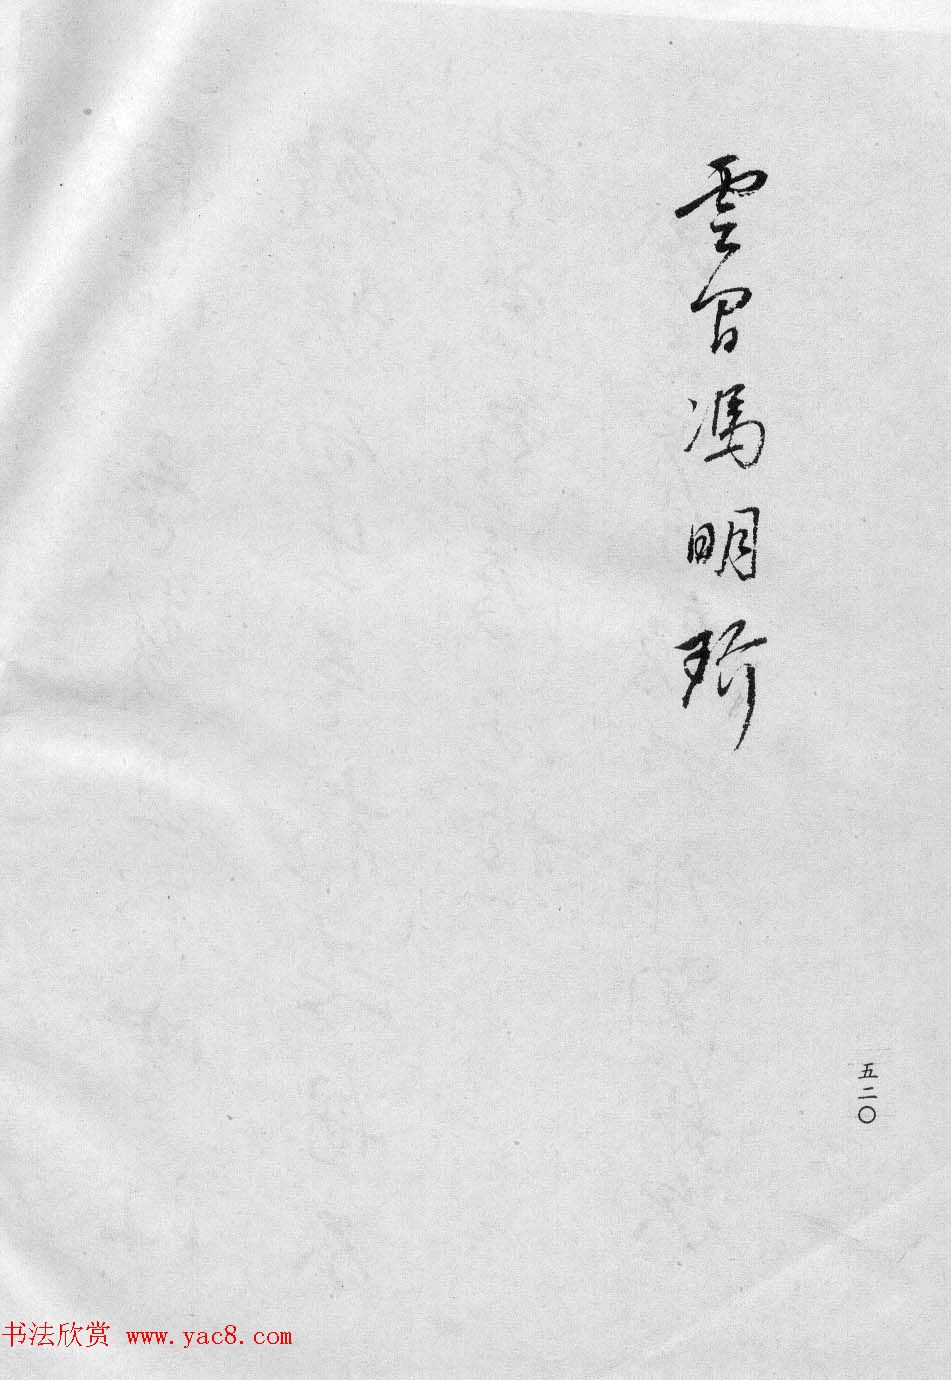 雲曾馮明玠
五二〇
书法欣赏 www.yac8.com